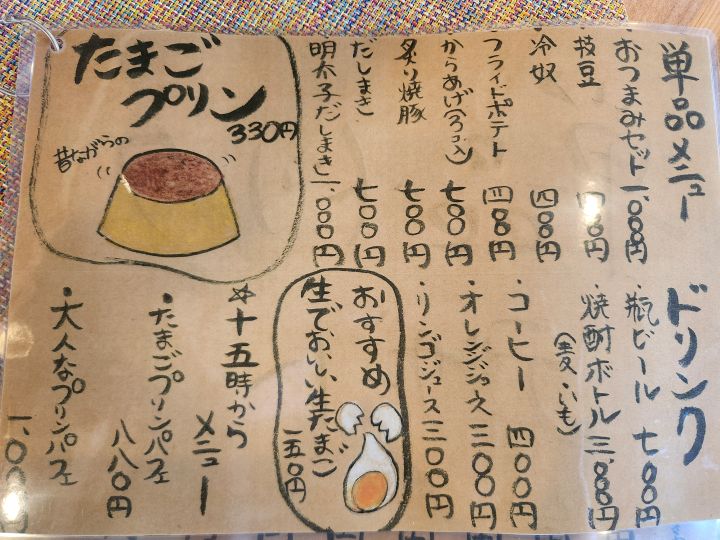 単品メニュー
・おつまみセット 一、000円
・枝豆 四00円
・冷奴 四00円
・フライドポテト 四00円
・からあげ(5コ入) 七00円
・炙り焼豚 七00円
・だしまき 七00円
・明太子だしまき 一、000円
たまご
プリン
330円
昔ながらの
ドリンク
・瓶ビール 七00円
・焼酎ボトル 三、000円
(麦・いも)
・コーヒー 四00円
・オレンジジュース 三00円
・リンゴジュース 三00円
おすすめ
生でおいしい生たまご
一五0円
☆十五時から
メニュー
・たまごプリンパフェ
八八0円
・大人なプリンパフェ
一、00